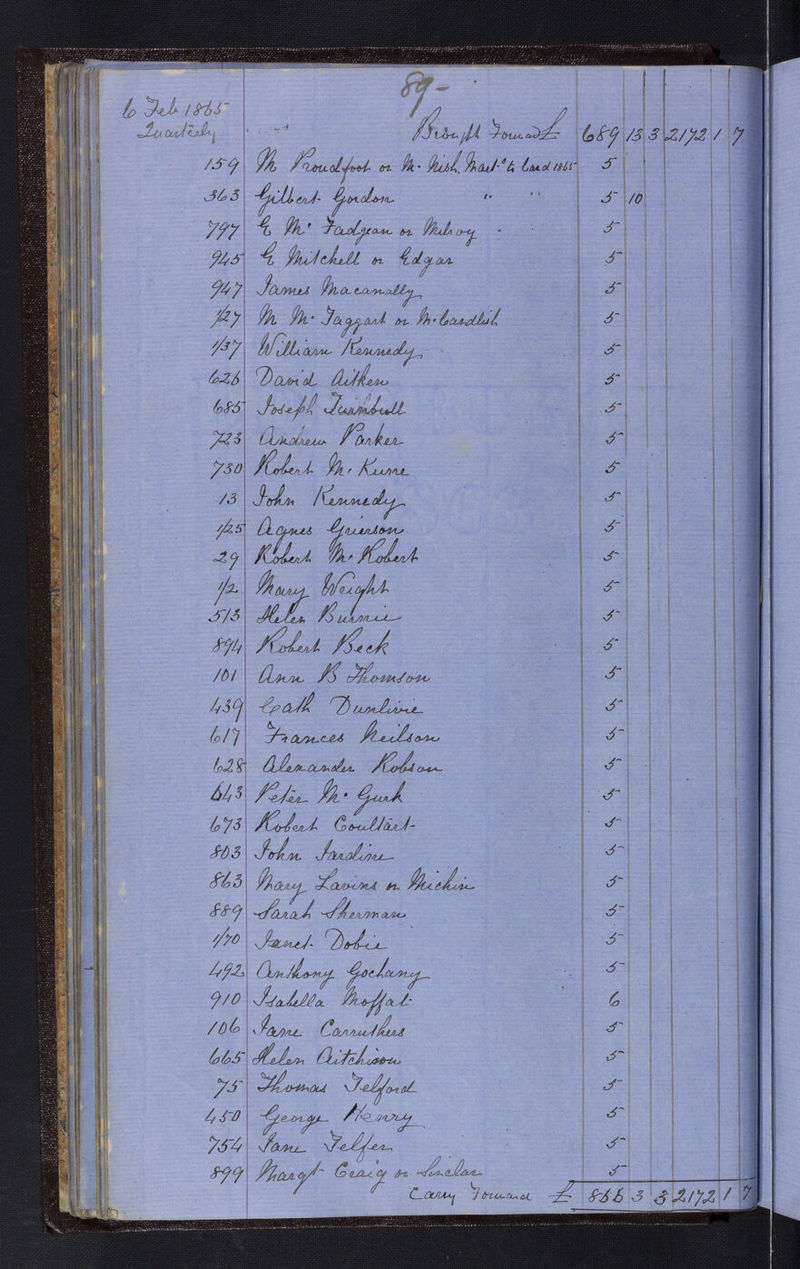 89-
6 Feb 1865
Quarterly
Brought Forward £ 689 13 3 2172 1 7
159 M Proudfoot or Mc Nish, Mart.s to Cand 1865 5
363 Gilbert Gordon " " 5 10
797 E Mc Fadgean or Milroy 5
945 E Mitchell or Edgar 5
947 James Macanally 5
1/27 M Mc Taggart or McCandlish 5
1/37 William Kennedy 5
626 David Aitken 5
685 Joseph Turnbull 5
723 Andrew Parker 5
730 Robert Mc Kune 5
13 John Kennedy 5
1/25 Agnes Grierson 5
29 Robert Mc Robert 5
1/2 Mary Wright 5
513 Helen Burnie 5
894 Robert Beck 5
101 Ann B Thomson 5
439 Cath Dunlivie 5
617 Frances Neilson 5
628 Alexander Robson 5
643 Peter Mc Gurk 5
673 Robert Coultart 5
803 John Jardine 5
863 Mary Lavins or Michin 5
889 Sarah Sherman 5
1/70 Janet Dobie 5
492 Anthony Gochany 5
910 Isabella Moffat 6
106 Jane Carruthers 5
665 Helen Aitchison 5
75 Thomas Telford 5
450 George Henry 5
754 Jane Telfer 5
899 Margt Craig or Sinclar 5
Carry Forward £ 866 3 3 2172 1 7